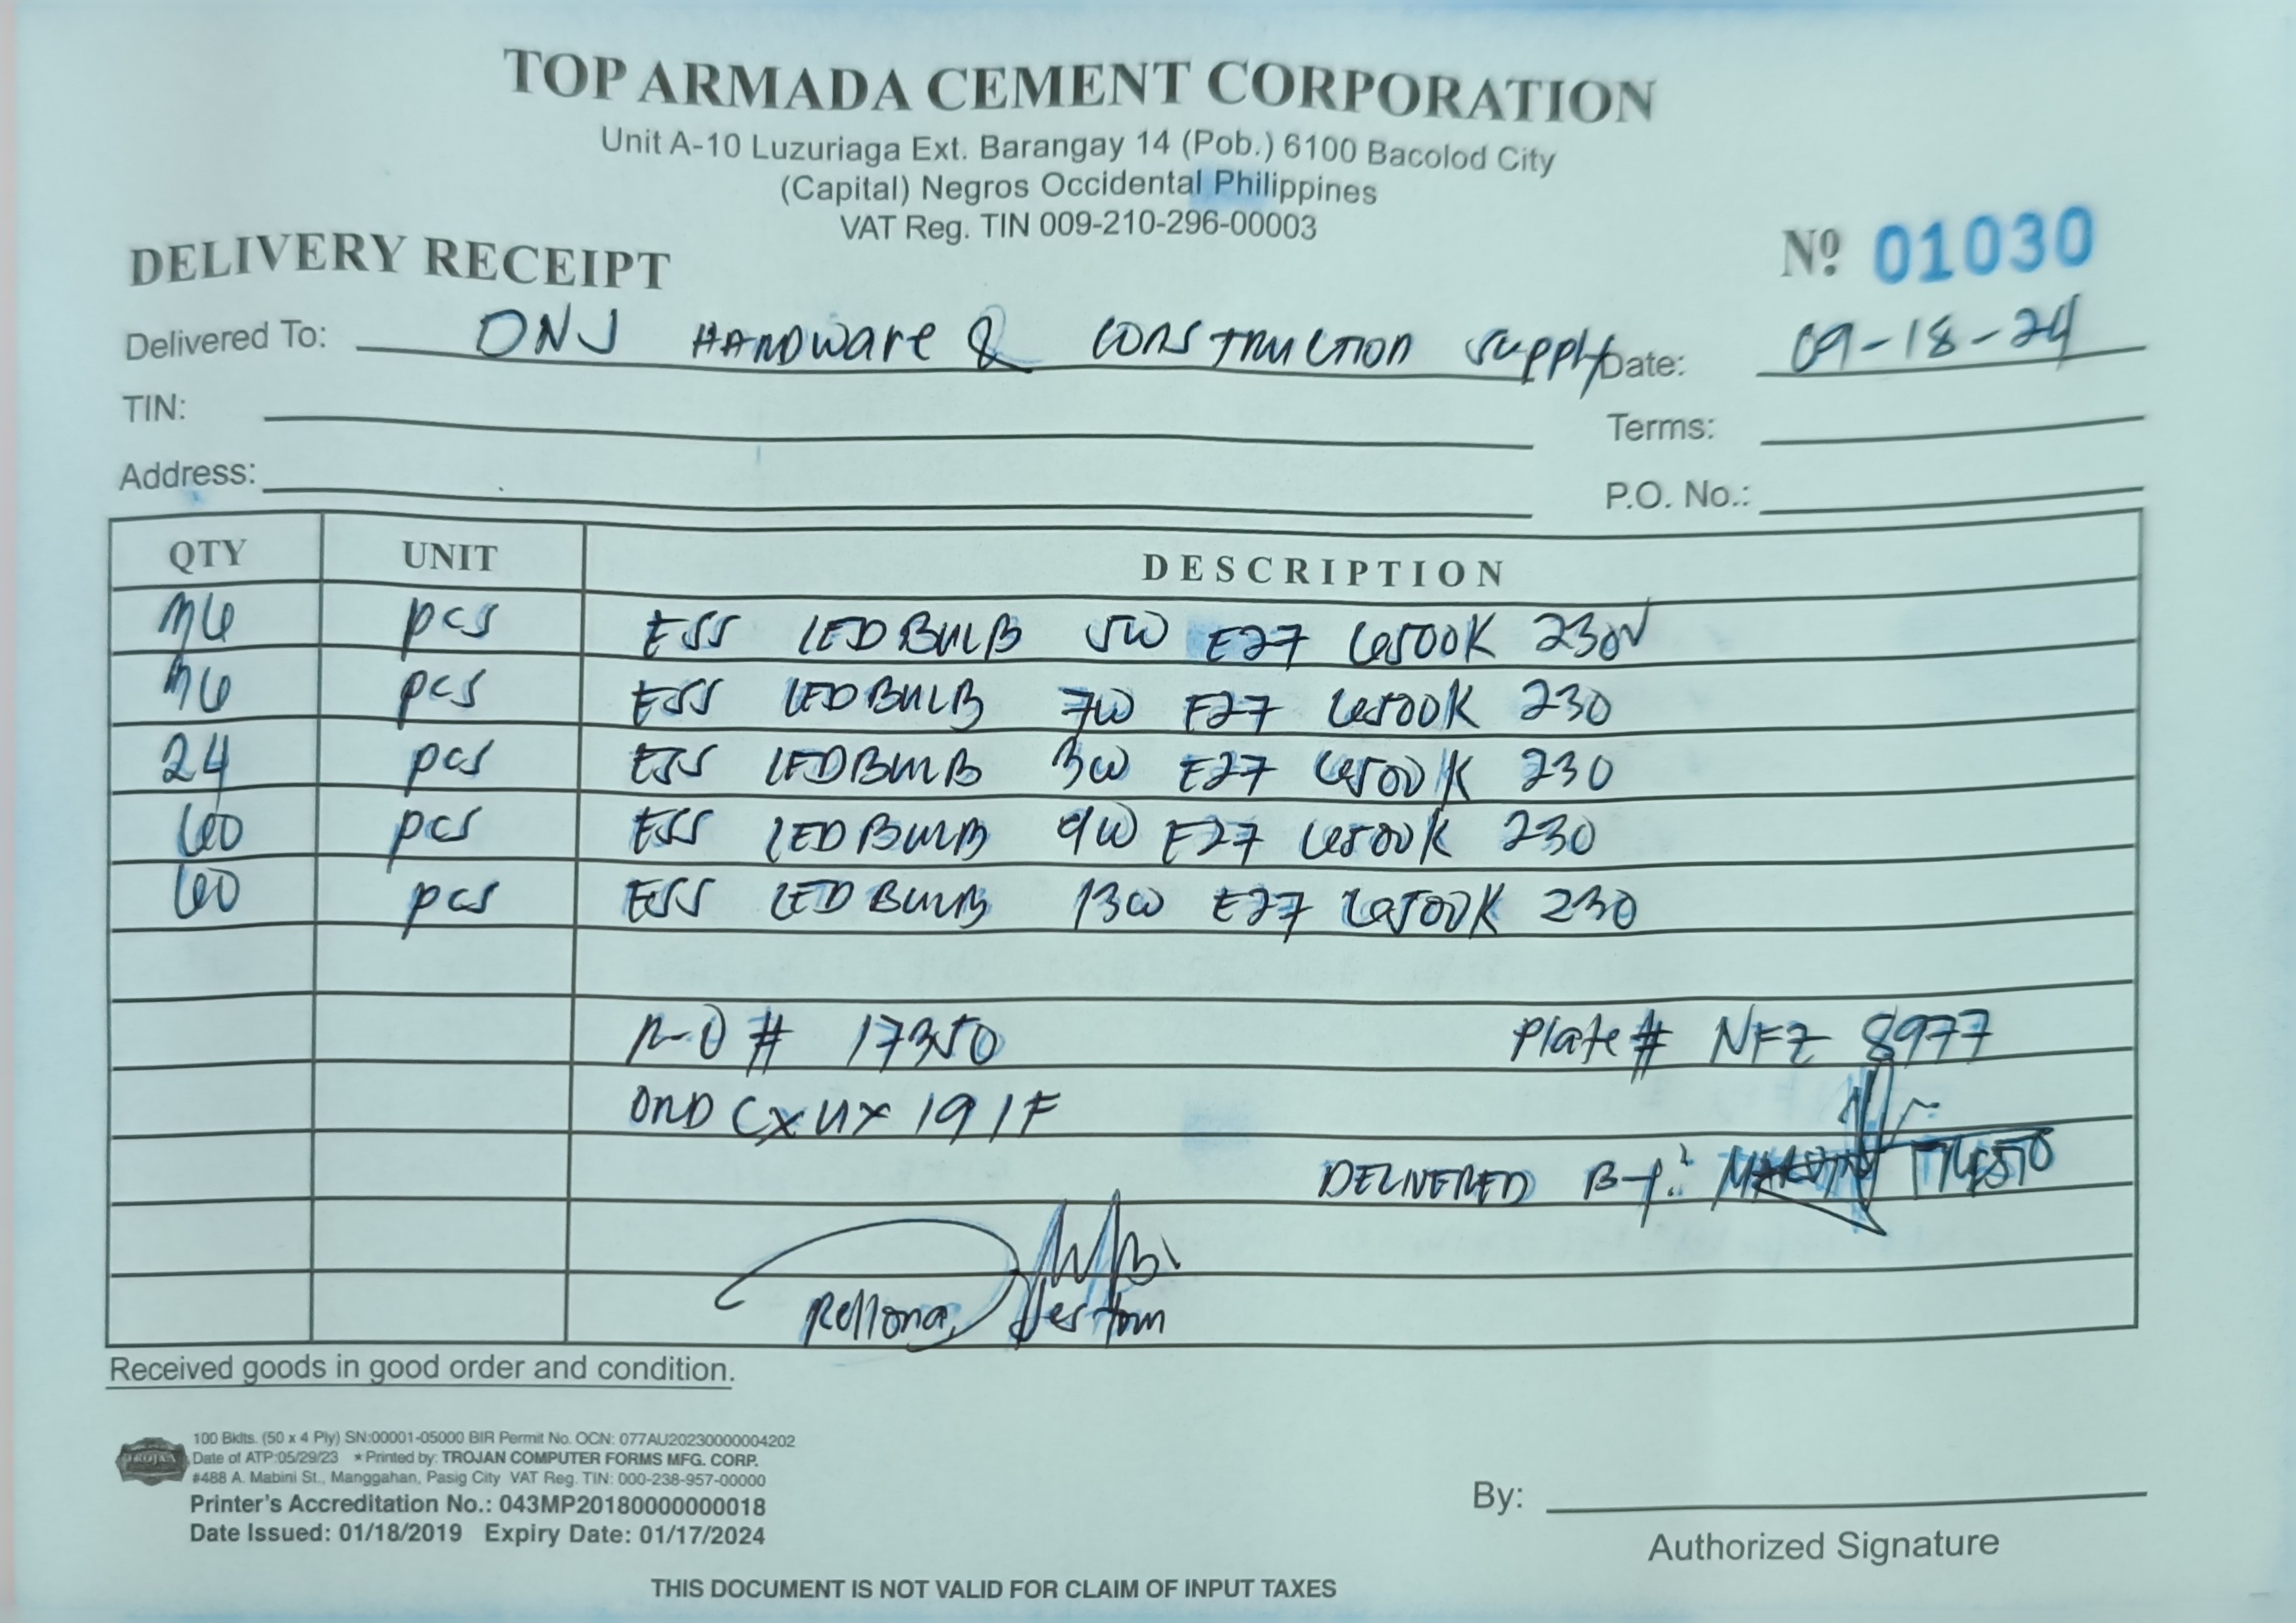 TOP ARMADA CEMENT CORPORATION
Unit A-10 Luzuriaga Ext. Barangay 14 (Pob.) 6100 Bacolod City
(Capital) Negros Occidental Philippines
VAT Reg. TIN 009-210-296-00003
DELIVERY RECEIPT Nº 01030
Delivered To: DNJ HARDware & CONSTRUCTION supply Date: 09-18-24
TIN: Terms:
Address: P.O. No.:
QTY UNIT DESCRIPTION
36 pcs ESS LED BULB 5W E27 6500K 230V
36 pcs ESS LED BULB 7W E27 6500K 230
24 pcs ESS LED BULB 3W E27 6500K 230
60 pcs ESS LED BULB 9W E27 6500K 230
60 pcs ESS LED BULB 13W E27 6500K 230
# 17350 Plate# NFZ 8977
DELIVERED BY:
Received goods in good order and condition.
100 Bklts. (50 x 4 Ply) SN:00001-05000 BIR Permit No. OCN: 077AU20230000004202
TROJAN Date of ATP:05/29/23 *Printed by: TROJAN COMPUTER FORMS MFG. CORP.
#488 A. Mabini St., Manggahan, Pasig City VAT Reg. TIN: 000-238-957-00000
Printer's Accreditation No.: 043MP20180000000018
Date Issued: 01/18/2019 Expiry Date: 01/17/2024
By:
Authorized Signature
THIS DOCUMENT IS NOT VALID FOR CLAIM OF INPUT TAXES